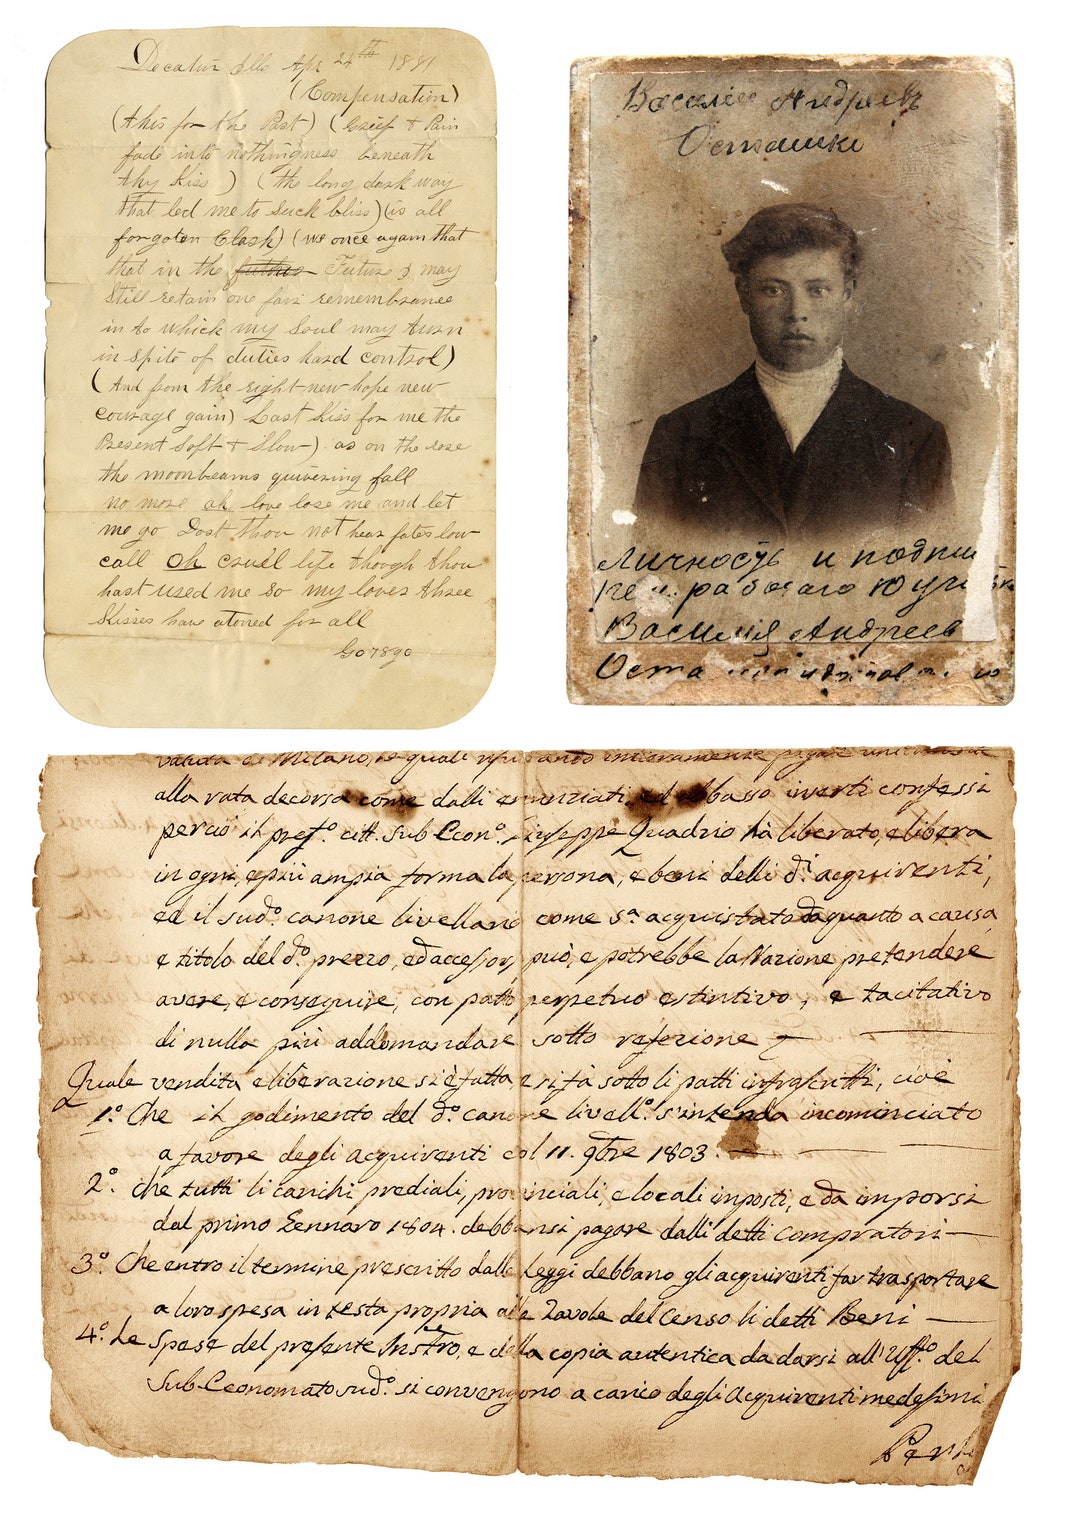 Decatur Ills Apr 24th 1881
(Compensation)
(A kis for the Past) (Grief & Pain
fade into nothingness beneath
thy Kiss) (the long dark way
that led me to Suck bliss) (is all
forgoten Clash) (we once again that
that in the Future I may
Still retain one fair remembrance
in to which my Soul may turn
in spite of duties hard control)
(And from the sight new hope new
courage gain) Last Kiss for me the
Present Soft & Slow) as on the rose
the moonbeams quivering fall
no more ah love lose me and let
me go Dost thou not hear fates low
call Oh cruel life though thou
hast used me So my loves three
Kisses have atoned for all
Василие Андреевъ
Осташки
Личность и подпи
рабочаго
Василия Андреев
Оста
valuta di Milano, le quali interamente pagate
alla rata decorsa come dalli enunziati, ed abbasso inverti confessi
perciò il pref.o citt. Sub-Econ.o Giuseppe Quadrio hà liberato, e libera
in ogni, e più ampia forma la persona, e beni delli d.i acquirenti,
ed il sud.o canone livellario come s.a acquistato da quanto a causa,
e titolo del d.o prezzo, ed accessorj può, e potrebbe la Nazione pretendere
avere, e conseguire, con patto perpetuo estintivo, e tacitativo
di nulla più addomandare sotto refezione
Quale vendita e liberazione si è fatta, e si fà sotto li patti infrascritti, cioè
1.o Che il godimento del d.o canone livell.o s'intenda incominciato
a favore degli acquirenti col 11. 9bre 1803.
2.o Che tutti li carichi prediali, provinciali, e locali imposti, e da imporsi
dal primo Gennaro 1804. debbansi pagare dalli detti compratori
3.o Che entro il termine prescritto dalle Leggi debbano gli acquirenti far trasportare
a loro spesa in testa propria alle Tavole del Censo li detti Beni
4.o Le Spese del presente Instro, e della copia autentica da darsi all'Uff.o del
Sub-Economato sud.o si convengono a carico degli Acquirenti medesimi